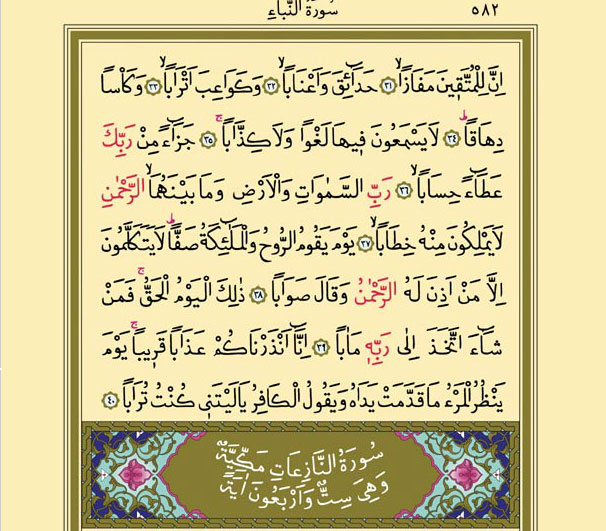 ٥٨٢ سُورَةُ النَّبَاءِ
اِنَّ لِلْمُتَّق۪ينَ مَفَازًاۙ ﴿٣١﴾ حَدَٓائِقَ وَاَعْنَابًاۙ ﴿٣٢﴾ وَكَوَاعِبَ اَتْرَابًاۙ ﴿٣٣﴾ وَكَأْسًا
دِهَاقًاۜ ﴿٣٤﴾ لَا يَسْمَعُونَ ف۪يهَا لَغْوًا وَلَا كِذَّابًاۚ ﴿٣٥﴾ جَزَٓاءً مِنْ رَبِّكَ
عَطَٓاءً حِسَابًاۙ ﴿٣٦﴾ رَبِّ السَّمٰوَاتِ وَالْاَرْضِ وَمَا بَيْنَهُمَا الرَّحْمٰنِ
لَا يَمْلِكُونَ مِنْهُ خِطَابًاۙ ﴿٣٧﴾ يَوْمَ يَقُومُ الرُّوحُ وَالْمَلٰٓئِكَةُ صَفًّاۜ لَا يَتَكَلَّمُونَ
اِلَّا مَنْ اَذِنَ لَهُ الرَّحْمٰنُ وَقَالَ صَوَابًا ﴿٣٨﴾ ذٰلِكَ الْيَوْمُ الْحَقُّۚ فَمَنْ
شَٓاءَ اتَّخَذَ اِلٰى رَبِّه۪ مَاٰبًا ﴿٣٩﴾ اِنَّٓا اَنْذَرْنَاكُمْ عَذَابًا قَر۪يبًاۚ يَوْمَ
يَنْظُرُ الْمَرْءُ مَا قَدَّمَتْ يَدَاهُ وَيَقُولُ الْكَافِرُ يَا لَيْتَن۪ي كُنْتُ تُرَابًا ﴿٤٠﴾
سُورَةُ النَّازِعَاتِ مَكِّيَّةٌ
وَهِيَ سِتٌّ وَاَرْبَعُونَ اٰيَةً